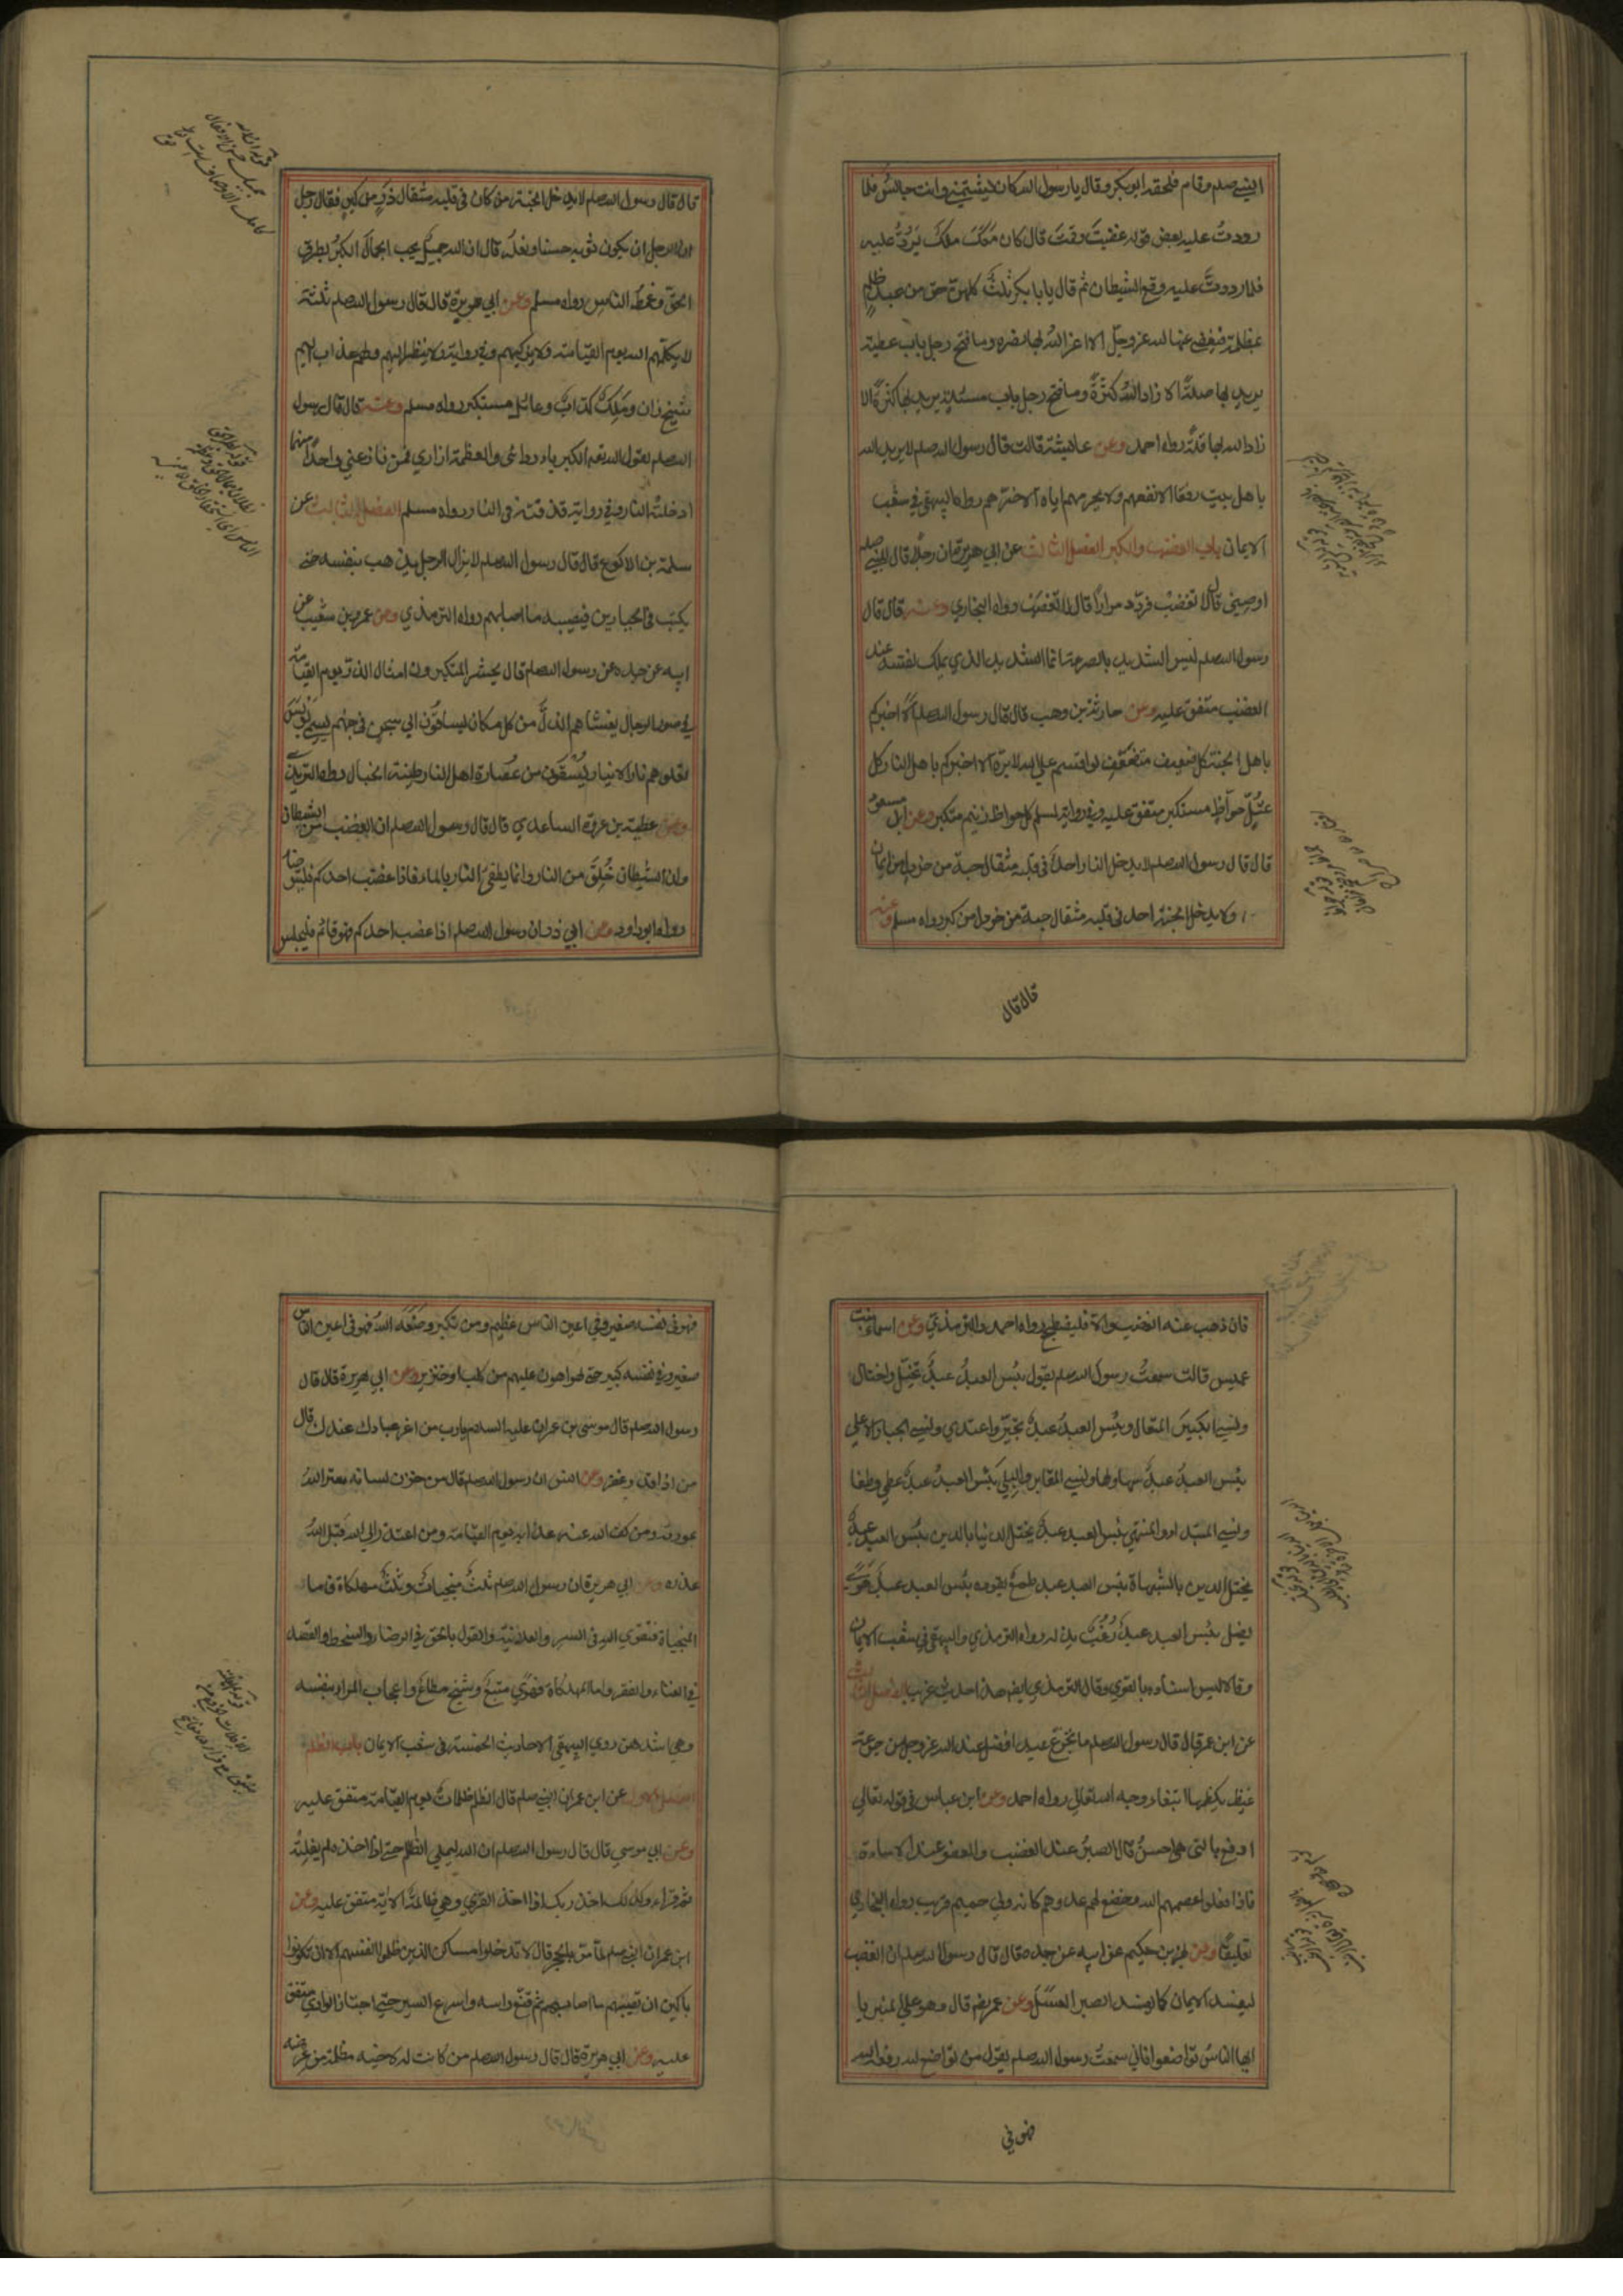 النبي صلعم وقام فلحقه ابو بكر وقال يا رسول الله كان يشتمني وانت جالس فلما
رددتُ عليه بعض قوله غضبتَ وقمتَ قال كان معك ملك يردّ عليه
فلما رددتَ عليه وقع الشيطان ثم قال يا با بكر ثلث كلهن حق من عبد ظلم
بمظلمة فيغضي عنها لله عز وجل الا اعز الله بها نصره وما فتح رجل باب عطية
يريد بها صلة الا زاد الله كثرة وما فتح رجل باب مسئلة يريد بها كثرة الا
زاد الله بها قلة رواه احمد وعن عايشة قالت قال رسول الله صلعم لا يريد الله
باهل بيت رفقا الا نفعهم ولا يحرمهم اياه الا ضرهم رواه البيهقي في شعب
الايمان باب الغضب والكبر الفصل عن ابي هريرة ان رجلا قال للنبي صلعم
اوصيني قال لا تغضب فردد مرارا قال لا تغضب رواه البخاري وعنه قال قال
رسول الله صلعم ليس الشديد بالصرعة انما الشديد الذي يملك نفسه عند
الغضب متفق عليه وعن حارثة بن وهب قال قال رسول الله صلعم الا اخبركم
باهل الجنة كل ضعيف متضعف لو اقسم على الله لابرّه الا اخبركم باهل النار كل
عتلّ جواظ مستكبر متفق عليه وفي رواية لمسلم كل جواظ زنيم متكبر وعن ابن مسعود
قال قال رسول الله صلعم لا يدخل النار احد في قلبه مثقال حبة من خردل من ايمان
ولا يدخل الجنة احد في قلبه مثقال حبة من خردل من كبر رواه مسلم وعنه
قال قال
قال قال رسول الله صلعم لا يدخل الجنة من كان في قلبه مثقال ذرة من كبر فقال رجل
ان الرجل ان يكون ثوبه حسنا ونعله قال ان الله جميل يحب الجمال الكبر بطر
الحق وغمط الناس رواه مسلم وعن ابي هريرة قال قال رسول الله صلعم ثلثة
لا يكلمهم الله يوم القيامة ولا يزكيهم وفي رواية ولا ينظر اليهم ولهم عذاب اليم
شيخ زان وملك كذاب وعائل مستكبر رواه مسلم وعنه قال قال رسول
الله صلعم يقول الله تعالى الكبرياء ردائي والعظمة ازاري فمن نازعني واحدا منهما
ادخلته النار وفي رواية قذفته في النار رواه مسلم الفصل عن
سلمة بن الاكوع قال قال رسول الله صلعم لا يزال الرجل يذهب بنفسه حتى
يكتب في الجبارين فيصيبه ما اصابهم رواه الترمذي وعن عمرو بن شعيب عن
ابيه عن جده عن رسول الله صلعم قال يحشر المتكبرون امثال الذر يوم القيامة
في صور الرجال يغشاهم الذل من كل مكان يساقون الى سجن في جهنم يسمى بولس
تعلوهم نار الانيار يسقون من عصارة اهل النار طينة الخبال رواه الترمذي
وعن عطية بن عروة السعدي قال قال رسول الله صلعم ان الغضب من الشيطان
وان الشيطان خلق من النار وانما يطفئ النار بالماء فاذا غضب احدكم فليتوضا
رواه ابو داود وعن ابي ذر ان رسول الله صلعم اذا غضب احدكم وهو قائم فليجلس
فان ذهب عنه الغضب والا فليضطجع رواه احمد والترمذي وعن اسماء بنت
عميس قالت سمعت رسول الله صلعم يقول بئس العبد عبد تخيل واختال
ونسي الكبير المتعال وبئس العبد عبد تجبر واعتدي ونسي الجبار الاعلى
بئس العبد عبد سها ولها ونسي المقابر والبلى بئس العبد عبد عتى وطغا
ونسي المبتدا والمنتهى بئس العبد عبد يختل الدنيا بالدين بئس العبد عبد
يختل الدين بالشبهات بئس العبد عبد طمع يقوده بئس العبد عبد هوى
يضل بئس العبد عبد رغب يذله رواه الترمذي والبيهقي في شعب الايمان
وقالا ليس اسناده بالقوي وقال الترمذي ايضا هذا حديث غريب الفصل الثالث
عن ابن عمر قال قال رسول الله صلعم ما تجرع عبد افضل عند الله عز وجل من جرعة
غيظ يكظمها ابتغاء وجه الله تعالى رواه احمد وعن ابن عباس في قوله تعالى
ادفع بالتي هي احسن قال الصبر عند الغضب والعفو عند الاساءة
فاذا فعلوا عصمهم الله وخضع لهم عدوهم كانه ولي حميم قريب رواه البخاري
تعليقا وعن بهز بن حكيم عن ابيه عن جده قال قال رسول الله صلعم ان الغضب
ليفسد الايمان كما يفسد الصبر العسل وعن عمر قال وهو على المنبر يا
ايها الناس تواضعوا فاني سمعت رسول الله صلعم يقول من تواضع لله رفعه الله
فهو في
فهو في نفسه صغير وفي اعين الناس عظيم ومن تكبر وضعه الله فهو في اعين الناس
صغير وفي نفسه كبير حتى لهو اهون عليهم من كلب او خنزير وعن ابي هريرة قال قال
رسول الله صلعم قال موسى بن عمران عليه السلام يا رب من اعز عبادك عندك قال
من اذا قدر غفر وعن انس ان رسول الله صلعم قال من خزن لسانه ستر الله
عورته ومن كف غضبه كف الله عنه عذابه يوم القيامة ومن اعتذر الى الله قبل الله
عذره وعن ابي هريرة ان رسول الله صلعم ثلث منجيات وثلث مهلكات فاما
المنجيات فتقوى الله في السر والعلانية والقول بالحق في الرضا والسخط والقصد
في الغناء والفقر واما المهلكات فهوى متبع وشح مطاع واعجاب المرء بنفسه
وهي اشدهن روى البيهقي الاحاديث الخمسة في شعب الايمان باب الظلم
الفصل الاول عن ابن عمر ان النبي صلعم قال الظلم ظلمات يوم القيامة متفق عليه
وعن ابي موسى قال قال رسول الله صلعم ان الله ليملي الظالم حتى اذا اخذه لم يفلته
ثم قراء وكذلك اخذ ربك اذا اخذ القرى وهي ظالمة الاية متفق عليه وعن
ابن عمر ان النبي صلعم لما مر بالحجر قال لا تدخلوا مساكن الذين ظلموا انفسهم الا ان تكونوا
باكين ان يصيبهم ما اصابهم ثم قنع راسه واسرع السير حتى اجتاز الوادي متفق
عليه وعن ابي هريرة قال قال رسول الله صلعم من كانت له لاخيه مظلمة من عرضه